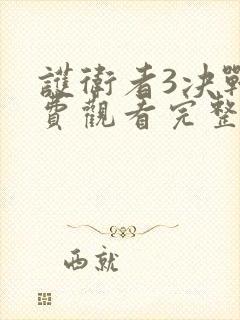 護衛者3决戰
費觀看完整
西就